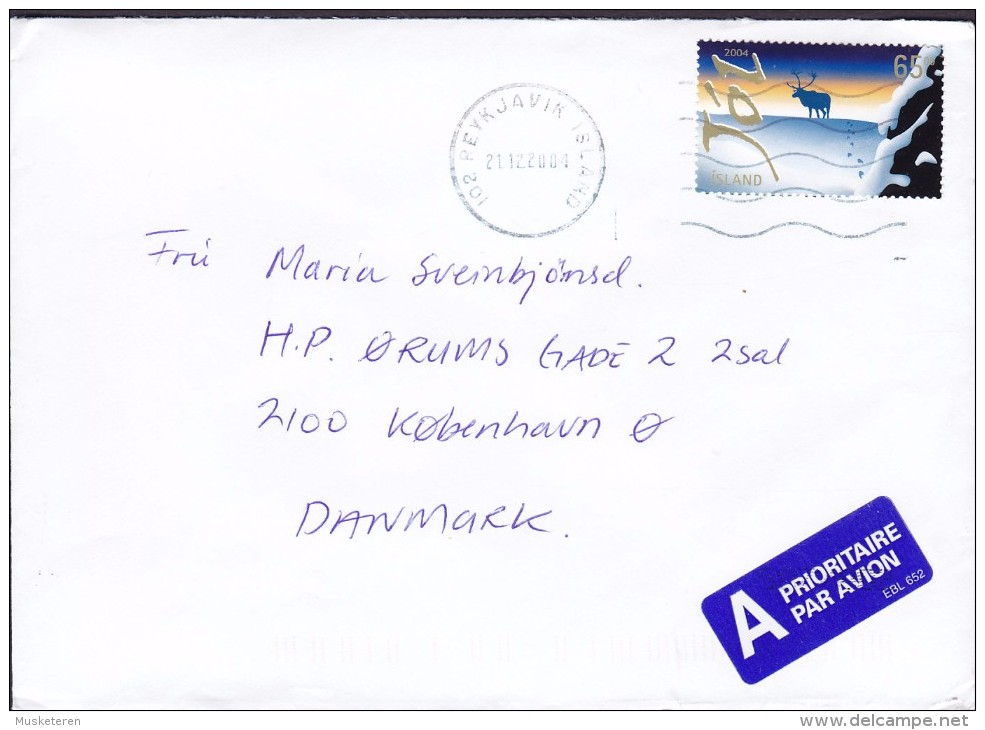 2004
65
JÓL
ÍSLAND
102 REYKJAVIK ISLAND
21.12.2004
Frú Maria Sveinbjönsd.
H.P. ØRUMS GADE 2 2sal
2100 København Ø
DANMARK.
A PRIORITAIRE
PAR AVION
EBL 652
Musketeren
www.delcampe.net